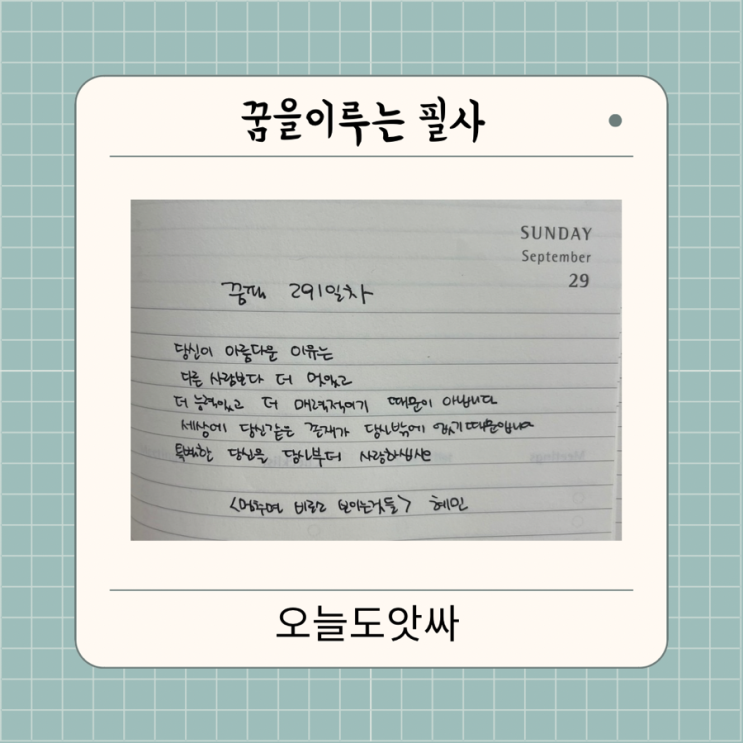 꿈을이루는 필사
SUNDAY
September
29
꿈필 291일차
당신이 아름다운 이유는
다른 사람보다 더 멋있고
더 능력있고 더 매력적이기 때문이 아닙니다
세상에 당신같은 존재가 당신밖에 없기 때문입니다
특별한 당신을 당신부터 사랑하십시오
<멈추면 비로소 보이는것들> 혜민
오늘도앗싸